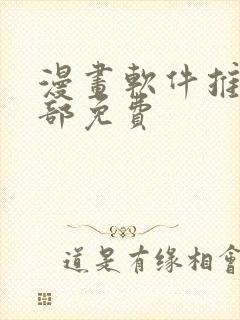 漫畫軟件推
部免費
道是有缘相會